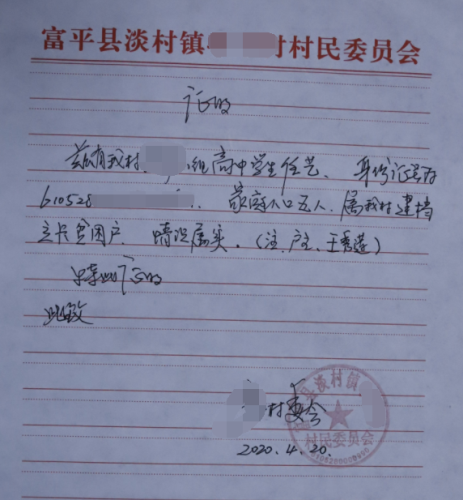 富平县淡村镇 村村民委员会
证明
兹有我村 组高中学生任艺、身份证号为
610528 . 家庭人口五人、属我村建档
立卡贫困户. 情况属实。(注:户主:王秀莲)
特此证明
此致
村委会
2020.4.20.
县淡村镇
村民委员会